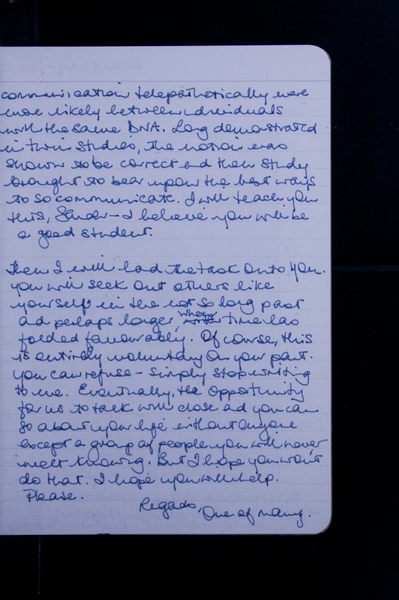 communication telepathetically were
more likely between individuals
with the same DNA. Long demonstrated
in twin studies, the notion was
shown to be correct and then study
brought to bear upon the best ways
to so communicate. I will teach you
this, Sandor - I believe you will be
a good student.
Then I will load the task onto you.
You will seek out others like
yourself in the not so long past
ad perhaps longer, where time has
folded favourably. Of course, this
is entirely voluntary on your part.
You can refuse - simply stop writing
to me. Eventually, the opportunity
for us to talk will close ad you can
go about your life without anyone
except a group of people you will never
meet knowing. But I hope you won't
do that. I hope you will help.
Please.
Regards,
One of many.